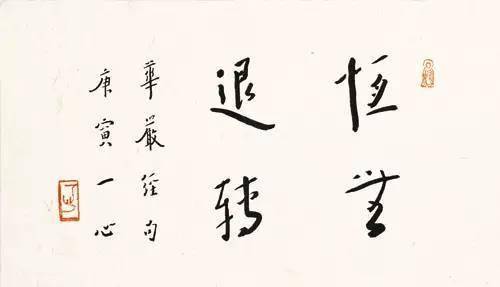 恒無
退轉
華嚴經句
庚寅一心